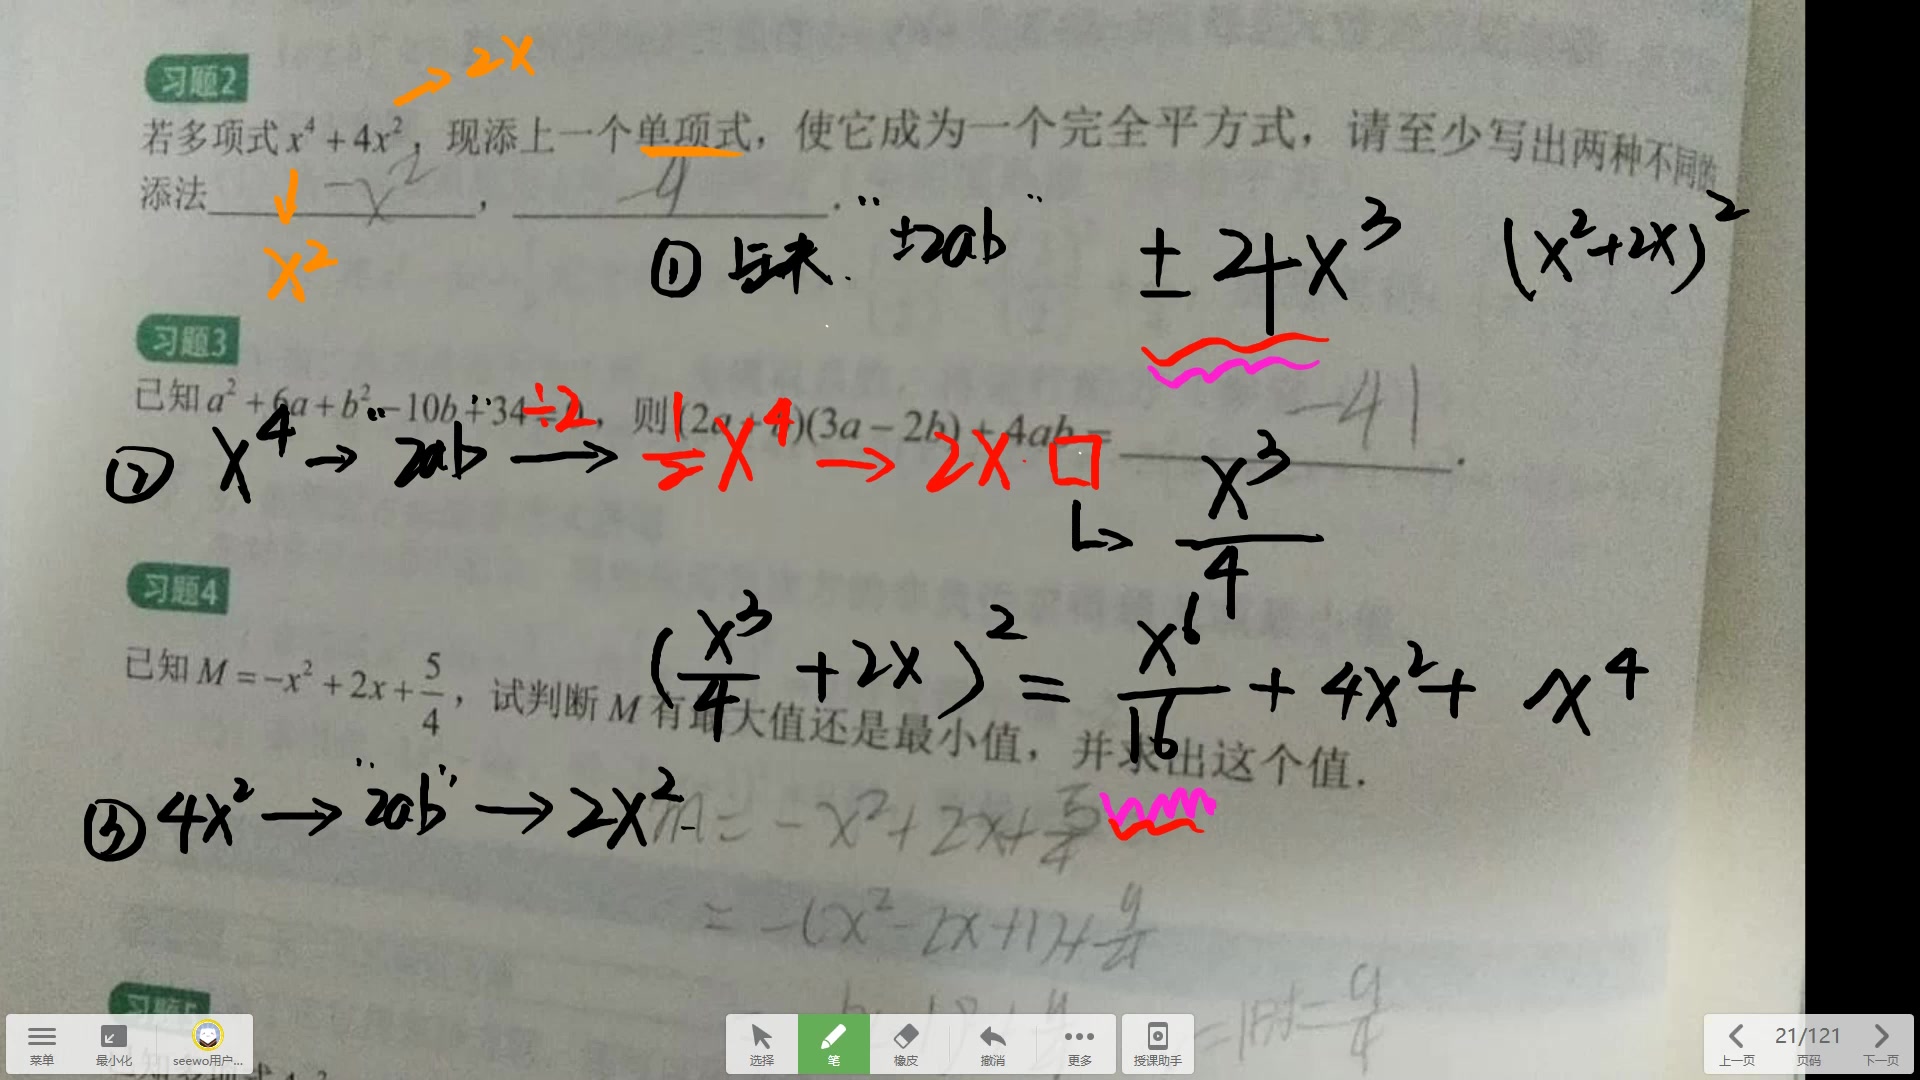 习题2
2x
若多项式x⁴+4x²，现添上一个单项式，使它成为一个完全平方式，请至少写出两种不同的
添法 -x²， -4．
x²
① 缺 "±2ab" ±24x³ (x²+2x)²
习题3
已知a²+6a+b²-10b+34=0，则(2a+b)(3a-2b)+4ab= -41．
② x⁴→"2ab"→÷2 1/2x⁴→2x·□
↳ x³/4
习题4
(x³/4+2x)²=x⁶/16+4x²+x⁴
已知M=-x²+2x+5/4，试判断M有最大值还是最小值，并求出这个值．
③ 4x²→"2ab"→2x²
M=-x²+2x+5/4
=-(x²-2x+1)+9/4
习题5
菜单 最小化 seewo用户... 选择 笔 橡皮 撤消 更多 授课助手 上一页 21/121 页码 下一页